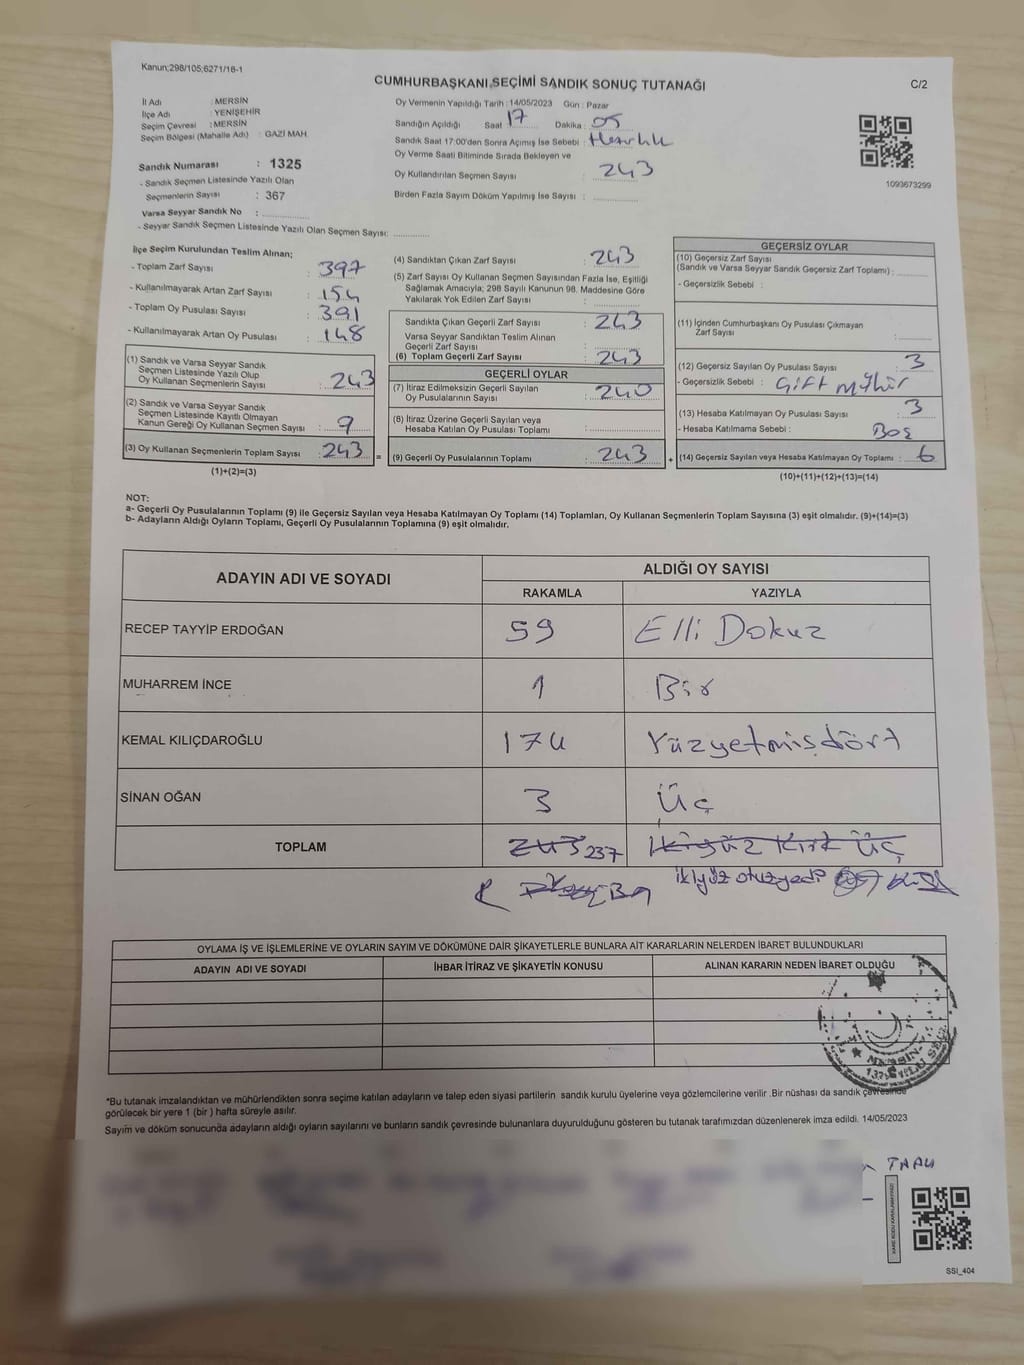 Kanun;298/105;6271/18-1
CUMHURBAŞKANI SEÇİMİ SANDIK SONUÇ TUTANAĞI
C/2
İl Adı : MERSİN
İlçe Adı : YENİŞEHİR
Seçim Çevresi : MERSİN
Seçim Bölgesi (Mahalle Adı) : GAZİ MAH.
Sandık Numarası : 1325
- Sandık Seçmen Listesinde Yazılı Olan
Seçmenlerin Sayısı : 367
Varsa Seyyar Sandık No : ..............
- Seyyar Sandık Seçmen Listesinde Yazılı Olan Seçmen Sayısı: ..............
Oy Vermenin Yapıldığı Tarih : 14/05/2023 Gün : Pazar
Sandığın Açıldığı Saat 17 Dakika : 05
Sandık Saat 17:00'den Sonra Açımış İse Sebebi : Hazırlık
Oy Verme Saati Bitiminde Sırada Bekleyen ve
Oy Kullandırılan Seçmen Sayısı : 243
Birden Fazla Sayım Döküm Yapılmış İse Sayısı : ..............
1093673299
İlçe Seçim Kurulundan Teslim Alınan;
- Toplam Zarf Sayısı : 397
- Kullanılmayarak Artan Zarf Sayısı : 154
- Toplam Oy Pusulası Sayısı : 391
- Kullanılmayarak Artan Oy Pusulası : 148
(1) Sandık ve Varsa Seyyar Sandık
Seçmen Listesinde Yazılı Olup
Oy Kullanan Seçmenlerin Sayısı : 243
(2) Sandık ve Varsa Seyyar Sandık
Seçmen Listesinde Kayıtlı Olmayan
Kanun Gereği Oy Kullanan Seçmen Sayısı : 9
(3) Oy Kullanan Seçmenlerin Toplam Sayısı : 243
(1)+(2)=(3)
(4) Sandıktan Çıkan Zarf Sayısı : 243
(5) Zarf Sayısı Oy Kullanan Seçmen Sayısından Fazla İse, Eşitliği
Sağlamak Amacıyla; 298 Sayılı Kanunun 98. Maddesine Göre
Yakılarak Yok Edilen Zarf Sayısı : ..............
Sandıkta Çıkan Geçerli Zarf Sayısı : 243
Varsa Seyyar Sandıktan Teslim Alınan
Geçerli Zarf Sayısı : ..............
(6) Toplam Geçerli Zarf Sayısı : 243
GEÇERLİ OYLAR
(7) İtiraz Edilmeksizin Geçerli Sayılan
Oy Pusulalarının Sayısı : 240
(8) İtiraz Üzerine Geçerli Sayılan veya
Hesaba Katılan Oy Pusulası Toplamı : ..............
= (9) Geçerli Oy Pusulalarının Toplamı : 243
GEÇERSİZ OYLAR
(10) Geçersiz Zarf Sayısı
(Sandık ve Varsa Seyyar Sandık Geçersiz Zarf Toplamı) : ........
- Geçersizlik Sebebi :
(11) İçinden Cumhurbaşkanı Oy Pusulası Çıkmayan
Zarf Sayısı : ........
(12) Geçersiz Sayılan Oy Pusulası Sayısı : 3
- Geçersizlik Sebebi : Çift mühür
(13) Hesaba Katılmayan Oy Pusulası Sayısı : 3
- Hesaba Katılmama Sebebi : Boş
+ (14) Geçersiz Sayılan veya Hesaba Katılmayan Oy Toplamı : 6
(10)+(11)+(12)+(13)=(14)
NOT:
a- Geçerli Oy Pusulalarının Toplamı (9) ile Geçersiz Sayılan veya Hesaba Katılmayan Oy Toplamı (14) Toplamları, Oy Kullanan Seçmenlerin Toplam Sayısına (3) eşit olmalıdır. (9)+(14)=(3)
b- Adayların Aldığı Oyların Toplamı, Geçerli Oy Pusulalarının Toplamına (9) eşit olmalıdır.
ADAYIN ADI VE SOYADI
ALDIĞI OY SAYISI
RAKAMLA YAZIYLA
RECEP TAYYİP ERDOĞAN 59 Elli Dokuz
MUHARREM İNCE 1 Bir
KEMAL KILIÇDAROĞLU 174 Yüzyetmişdört
SİNAN OĞAN 3 Üç
TOPLAM 243 237 İkiyüz Kırk Üç
ikiyüz otuzyedi
OYLAMA İŞ VE İŞLEMLERİNE VE OYLARIN SAYIM VE DÖKÜMÜNE DAİR ŞİKAYETLERLE BUNLARA AİT KARARLARIN NELERDEN İBARET BULUNDUKLARI
ADAYIN ADI VE SOYADI İHBAR İTİRAZ VE ŞİKAYETİN KONUSU ALINAN KARARIN NEDEN İBARET OLDUĞU
*Bu tutanak imzalandıktan ve mühürlendikten sonra seçime katılan adayların ve talep eden siyasi partilerin sandık kurulu üyelerine veya gözlemcilerine verilir .Bir nüshası da sandık çevresinde
görülecek bir yere 1 (bir ) hafta süreyle asılır.
Sayım ve döküm sonucunda adayların aldığı oyların sayılarını ve bunların sandık çevresinde bulunanlara duyurulduğunu gösteren bu tutanak tarafımızdan düzenlenerek imza edildi. 14/05/2023
KARE KODU KARALAMAYINIZ!
SSI_404